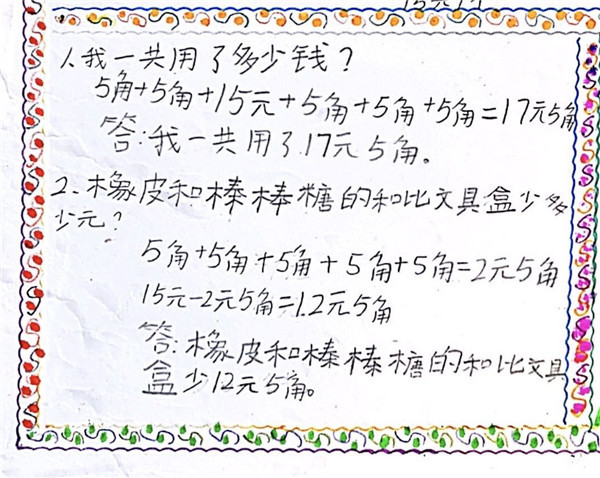 1、我一共用了多少钱？
5角+5角+15元+5角+5角+5角=17元5角
答:我一共用了17元5角。
2、橡皮和棒棒糖的和比文具盒少多
少元？
5角+5角+5角+5角+5角=2元5角
15元-2元5角=12元5角
答:橡皮和棒棒糖的和比文具
盒少12元5角。